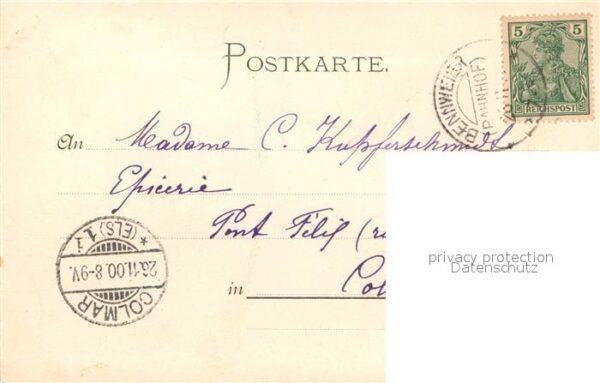 POSTKARTE.
5 5
REICHSPOST
BENNWEIER
(BAHNHOF)
An Madame C. Kupferschmidt
Epicerie
Pont
privacy protection
Datenschutz
in
COLMAR
26.11.00.8-9V.
* (ELS) 1 i